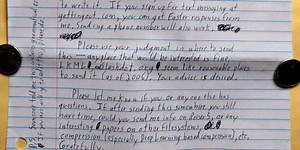 to write it. If you sign up for text messaging at
gettingout.com, you can get faster responses from
me. Sending a phone number will also work.
Please use your judgment in where to send
this — any place that would be interested is fine.
LKML
seem like reasonable places
to send it (as of 2006). Your advice is desired.
Please let me know if you, or any one else has
questions. If after sending this somewhere you still
have time, could you send me info on Reiser5, or any
interesting papers on other filesystems, or
compression (especially Deep Learning based compression), etc.
Gratefully,